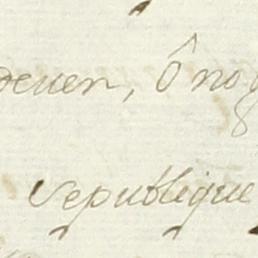 deuen, ô no
republique